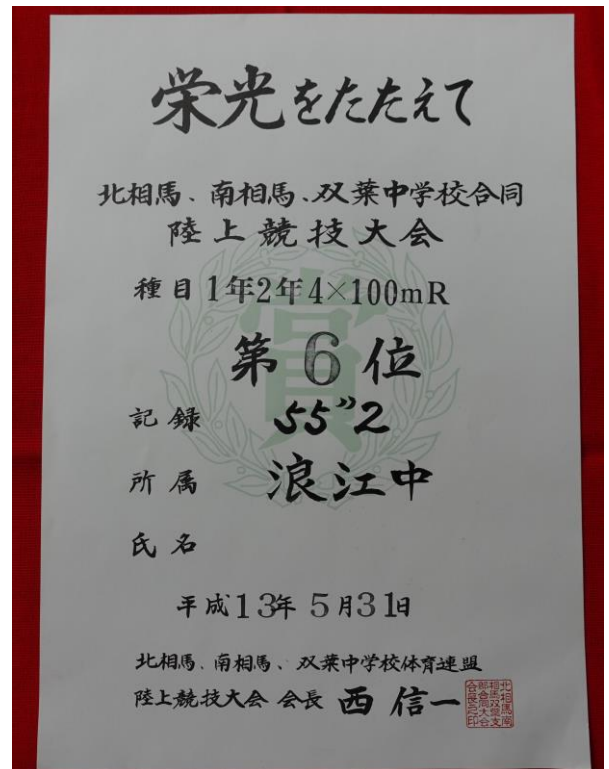 栄光をたたえて
北相馬、南相馬、双葉中学校合同
陸上競技大会
種目 1年2年4×100mR
賞
第6位
記録 55"2
所属 浪江中
氏名
平成13年5月31日
北相馬、南相馬、双葉中学校体育連盟
陸上競技大会 会長 西 信一